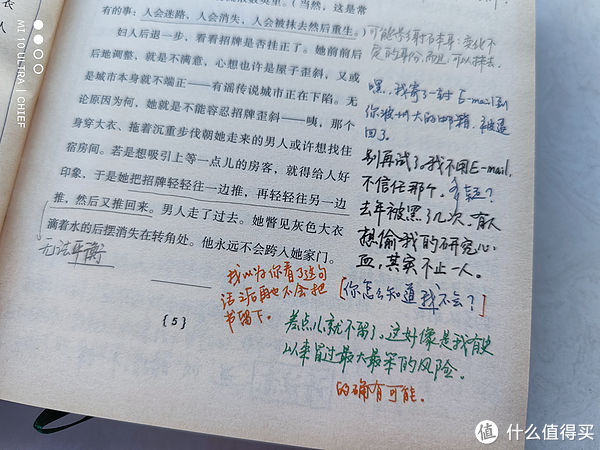 有的事：人会迷路，人会消失，人会被抹去然后重生。
妇人后退一步，看看招牌是否挂正了。她前前后
后地调整，就是不满意，心想也许是屋子歪斜，又或
是城市本身就不端正——有谣传说城市正在下陷。无
论原因为何，她就是不能容忍招牌歪斜——咦，那个
身穿大衣、拖着沉重步伐朝她走来的男人或许想找住
宿房间。若是想吸引上等一点儿的房客，就得给人好
印象，于是她把招牌轻轻往一边推，再轻轻往另一边
推，然后又推回来。男人走了过去。她瞥见灰色大衣
滴着水的后摆消失在转角处。他永远不会跨入她家门。
无法平衡
{5}
嘿，我寄了一封E-mail到
你波州大的邮箱，被退
回了。
别再试了。我不用E-mail，
不信任那个。
去年被黑了几次，有人
想偷我的研究心
血，其实不止一人。
我以为你看了这句
话之后再也不会把
书留下。
[你怎么知道我不会？]
差点儿就不留了。这好像是我有史
以来冒过最大最笨的风险。
的确有可能。
MI 10 ULTRA | CHIEF
值 什么值得买